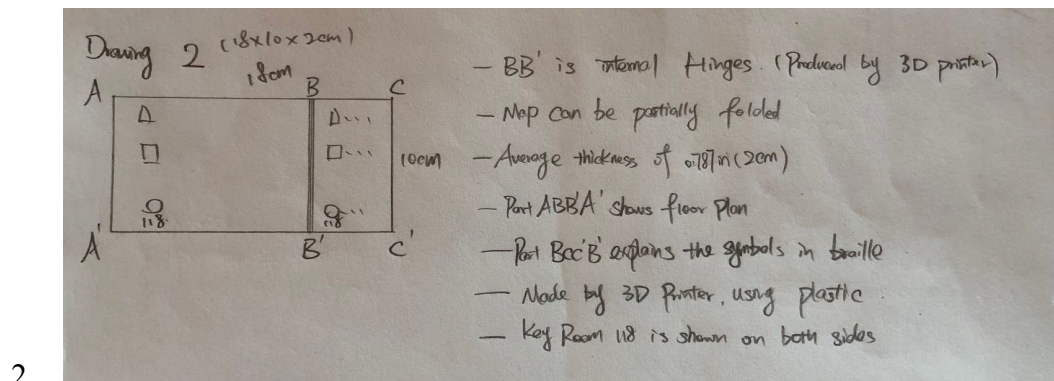 Drawing 2 (18x10x2cm)
18cm
A B C
10cm
118 118
A' B' C'
— BB' is internal Hinges. (Produced by 3D printer)
— Map can be partially folded
— Average thickness of 0.787in (2cm)
— Part ABB'A' shows floor plan
— Part BCC'B' explains the symbols in braille
— Made by 3D Printer, using plastic.
— Key Room 118 is shown on both sides
2